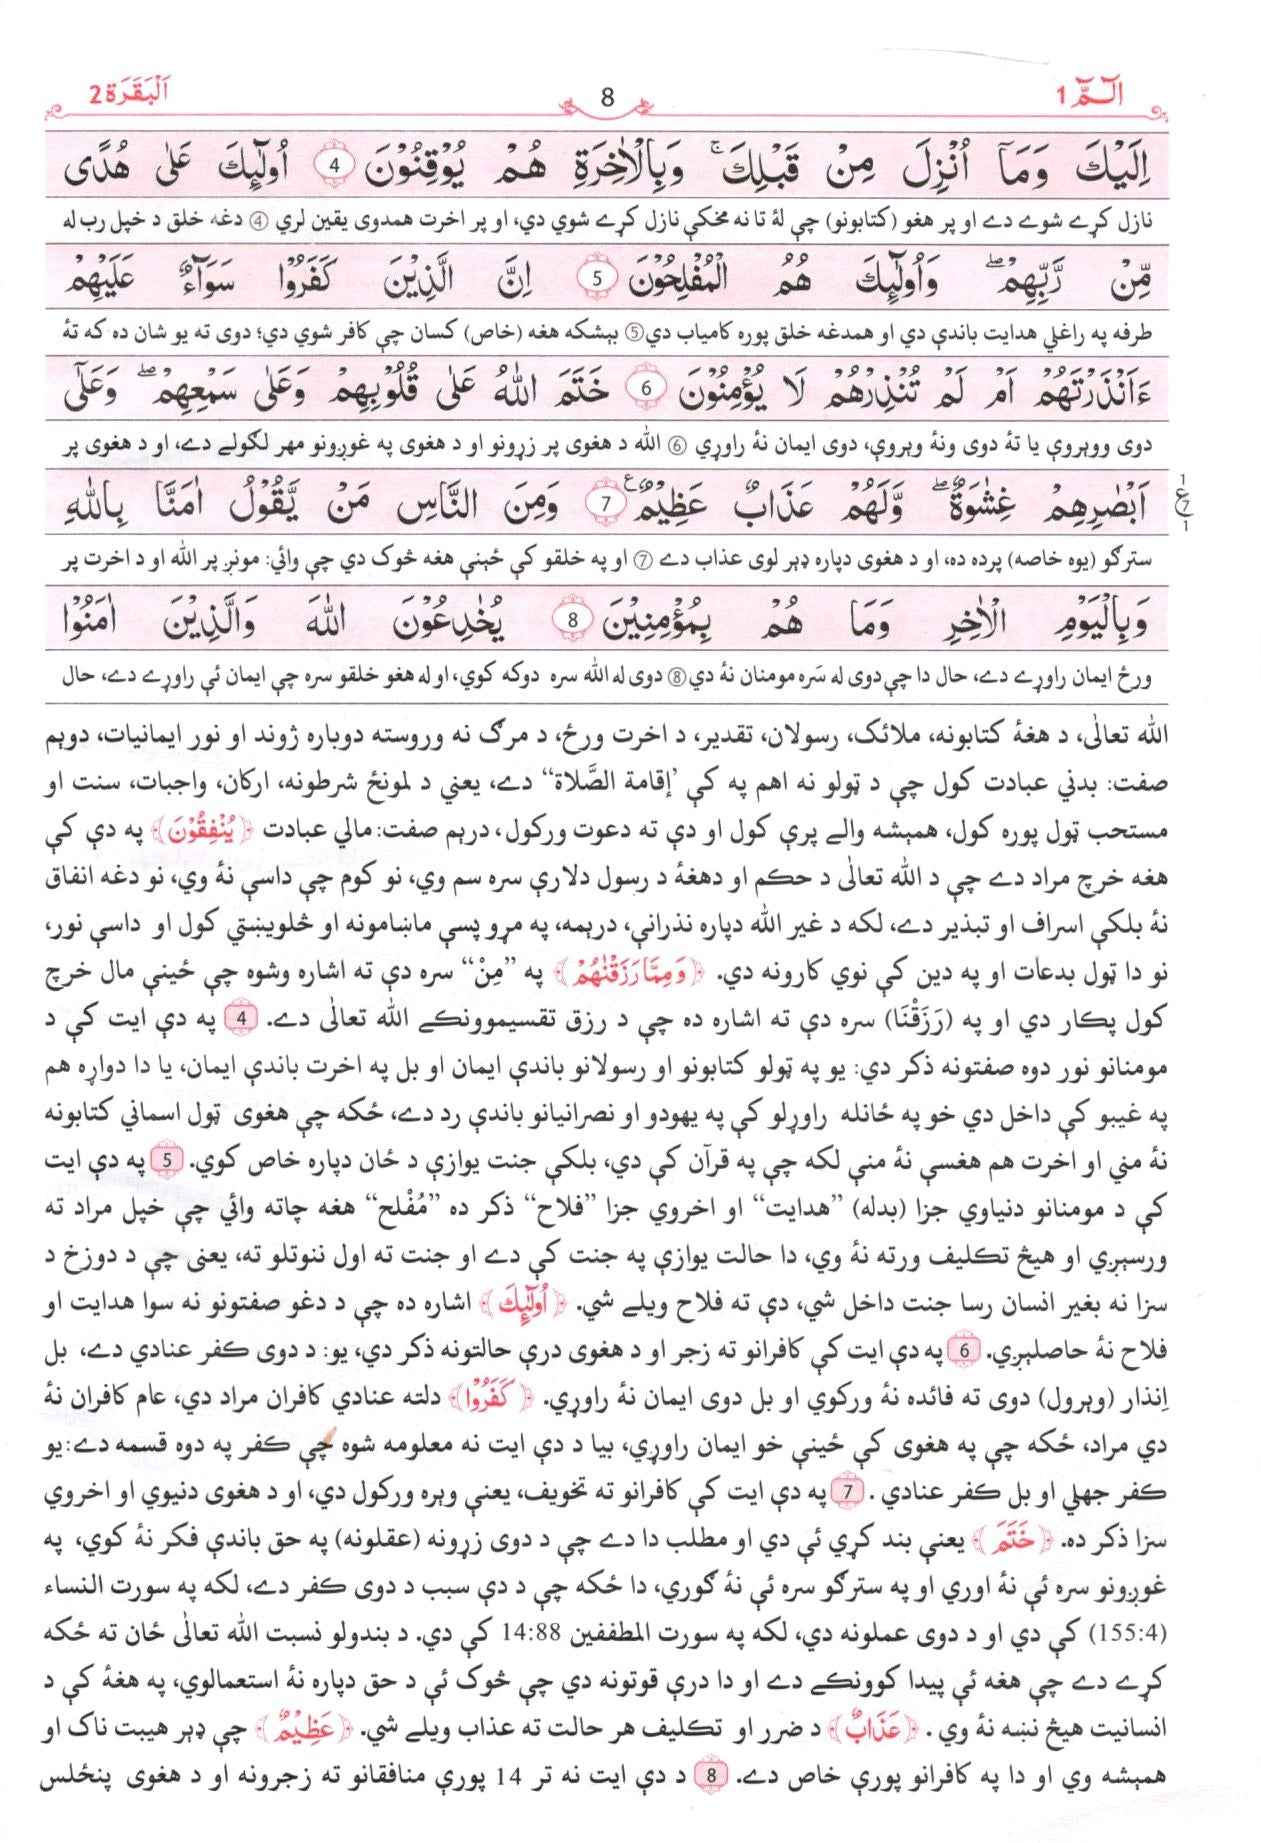 الٓمّٓ 1
8
اَلْبَقَرَة 2
اِلَيْكَ وَمَآ اُنْزِلَ مِنْ قَبْلِكَ ۚ وَبِالْاٰخِرَةِ هُمْ يُوْقِنُوْنَ 4 اُولٰٓئِكَ عَلٰى هُدًى
نازل کړے شوے دے او پر هغو (کتابونو) چې لۀ تا نه مخکې نازل کړے شوي دي، او پر اخرت همدوی یقین لري ④ دغه خلق د خپل رب له
مِّنْ رَّبِّهِمْ ۖ وَاُولٰٓئِكَ هُمُ الْمُفْلِحُوْنَ 5 اِنَّ الَّذِيْنَ كَفَرُوْا سَوَآءٌ عَلَيْهِمْ
طرفه په راغلي هدایت باندې دي او همدغه خلق پوره کامیاب دي⑤ بېشکه هغه (خاص) کسان چې کافر شوي دي؛ دوی ته یو شان ده که تۀ
ءَاَنْذَرْتَهُمْ اَمْ لَمْ تُنْذِرْهُمْ لَا يُؤْمِنُوْنَ 6 خَتَمَ اللّٰهُ عَلٰى قُلُوْبِهِمْ وَعَلٰى سَمْعِهِمْ ۖ وَعَلٰٓى
دوی ووېروې یا تۀ دوی ونۀ وېروې، دوی ایمان نۀ راوړي ⑥ الله د هغوی پر زړونو او د هغوی په غوږونو مهر لګولے دے، او د هغوی پر
اَبْصٰرِهِمْ غِشٰوَةٌ ۖ وَّلَهُمْ عَذَابٌ عَظِيْمٌ ۧ 7 وَمِنَ النَّاسِ مَنْ يَّقُوْلُ اٰمَنَّا بِاللّٰهِ
1
ع
7
1
سترګو (یوه خاصه) پرده ده، او د هغوی دپاره ډېر لوی عذاب دے ⑦ او په خلقو کې ځینې هغه څوک دي چې وائي: مونږ پر الله او د اخرت پر
وَبِالْيَوْمِ الْاٰخِرِ وَمَا هُمْ بِمُؤْمِنِيْنَ 8 يُخٰدِعُوْنَ اللّٰهَ وَالَّذِيْنَ اٰمَنُوْا
ورځ ایمان راوړے دے، حال دا چې دوی له سَره مومنان نۀ دي⑧ دوی له الله سره دوکه کوي، او له هغو خلقو سره چې ایمان ئې راوړے دے، حال
الله تعالٰی، د هغۀ کتابونه، ملائک، رسولان، تقدیر، د اخرت ورځ، د مرګ نه وروسته دوباره ژوند او نور ایمانیات، دوېم
صفت: بدني عبادت کول چې د ټولو نه اهم په کې ’’إقامة الصَّلاة‘‘ دے، یعني د لمونځ شرطونه، ارکان، واجبات، سنت او
مستحب ټول پوره کول، همېشه والے پرې کول او دې ته دعوت ورکول، درېم صفت: مالي عبادت ﴿يُنْفِقُوْنَ﴾ په دې کې
هغه خرچ مراد دے چې د الله تعالٰی د حکم او دهغۀ د رسول دلارې سره سم وي، نو کوم چې داسې نۀ وي، نو دغه انفاق
نۀ بلکې اسراف او تبذیر دے، لکه د غیر الله دپاره نذرانې، درېمه، په مړو پسې ماښامونه او څلوېښتي کول او داسې نور،
نو دا ټول بدعات او په دین کې نوي کارونه دي. ﴿وَمِمَّا رَزَقْنٰهُمْ﴾ په ’’مِنْ‘‘ سره دې ته اشاره وشوه چې ځینې مال خرچ
کول پکار دي او په (رَزَقْنَا) سره دې ته اشاره ده چې د رزق تقسیموونکے الله تعالٰی دے. 4 په دې ایت کې د
مومنانو نور دوه صفتونه ذکر دي: یو په ټولو کتابونو او رسولانو باندې ایمان او بل په اخرت باندې ایمان، یا دا دواړه هم
په غیبو کې داخل دي خو په ځانله راوړلو کې په یهودو او نصرانیانو باندې رد دے، ځکه چې هغوی ټول اسماني کتابونه
نۀ مني او اخرت هم هغسې نۀ مني لکه چې په قرآن کې دي، بلکې جنت یوازې د ځان دپاره خاص کوي. 5 په دې ایت
کې د مومنانو دنیاوي جزا (بدله) ’’هدایت‘‘ او اخروي جزا ’’فلاح‘‘ ذکر ده ’’مُفْلِح‘‘ هغه چاته وائي چې خپل مراد ته
ورسېږي او هیڅ تکلیف ورته نۀ وي، دا حالت یوازې په جنت کې دے او جنت ته اول ننوتلو ته، یعنی چې د دوزخ د
سزا نه بغیر انسان رسا جنت داخل شي، دې ته فلاح ویلے شي. ﴿اُولٰٓئِكَ﴾ اشاره ده چې د دغو صفتونو نه سوا هدایت او
فلاح نۀ حاصلېږي. 6 په دې ایت کې کافرانو ته زجر او د هغوی درې حالتونه ذکر دي، یو: د دوی کفر عنادي دے، بل
اِنذار (وېرول) دوی ته فائده نۀ ورکوي او بل دوی ایمان نۀ راوړي. ﴿كَفَرُوْا﴾ دلته عنادي کافران مراد دي، عام کافران نۀ
دي مراد، ځکه چې په هغوی کې ځینې خو ایمان راوړي، بیا د دې ایت نه معلومه شوه چې کفر په دوه قسمه دے: یو
کفر جهلي او بل کفر عنادي. 7 په دې ایت کې کافرانو ته تخویف، یعنې وېره ورکول دي، او د هغوی دنیوي او اخروي
سزا ذکر ده. ﴿خَتَمَ﴾ یعنې بند کړي ئې دي او مطلب دا دے چې د دوی زړونه (عقلونه) په حق باندې فکر نۀ کوي، په
غوږونو سره ئې نۀ اوري او په سترګو سره ئې نۀ ګوري، دا ځکه چې د دې سبب د دوی کفر دے، لکه په سورت النساء
(155:4) کې دي او د دوی عملونه دي، لکه په سورت المطففین 14:88 کې دي. د بندولو نسبت الله تعالٰی ځان ته ځکه
کړے دے چې هغه ئې پیدا کوونکے دے او دا درې قوتونه دي چې څوک ئې د حق دپاره نۀ استعمالوي، په هغۀ کې د
انسانیت هیڅ نښه نۀ وي. ﴿عَذَابٌ﴾ د ضرر او تکلیف هر حالت ته عذاب ویلے شي. ﴿عَظِيْمٌ﴾ چې ډېر هیبت ناک او
همېشه وي او دا په کافرانو پورې خاص دے. 8 د دې ایت نه تر 14 پورې منافقانو ته زجرونه او د هغوی پنځلس